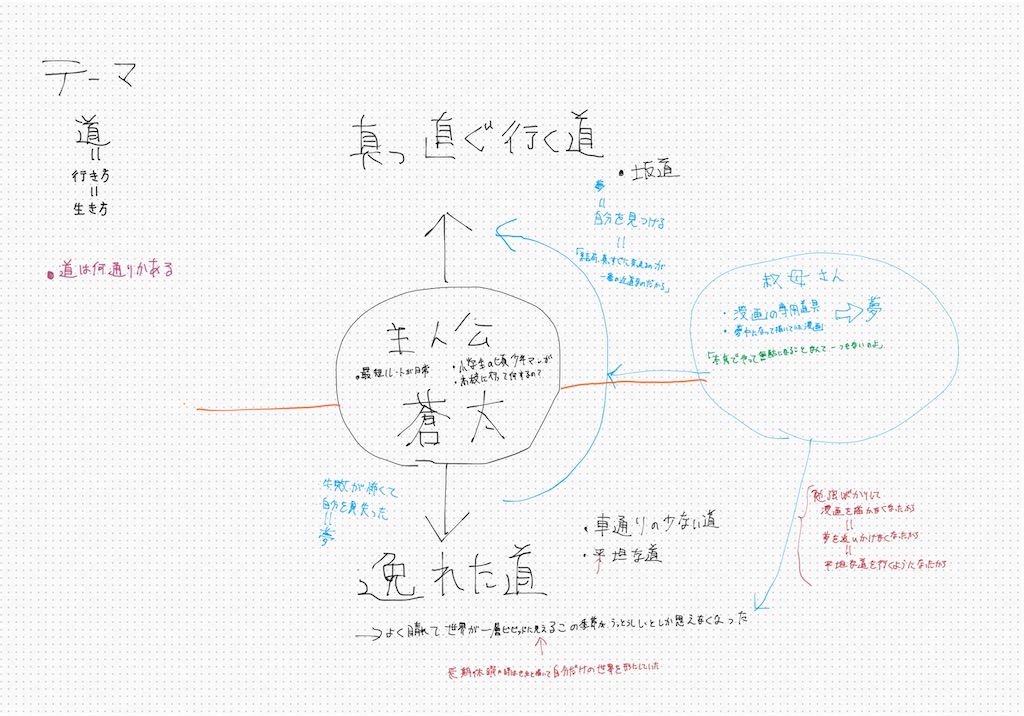 テーマ
道
=
行き方
=
生き方
・道は何通りかある
真っ直ぐ行く道
・坂道
夢
=
自分を見つける
=
一番の近道なのだから」
主人公
・最短ルートが日常
・小学生の頃少年マンガ
・高校に行って何するの?
蒼太
叔母さん
・漫画の専用道具
⇒夢
・夢中になって描いていた漫画
「本気でやって無駄になることなんて一つもないのよ」
失敗が怖くて
自分を見失った
=
夢
・車通りの少ない道
・平坦な道
逸れた道
→よく晴れて、世界が一層ビビッドに見えるこの季節を、うっとうしいとしか思えなくなった
長期休暇の時は
自分だけの世界を形にしていた
勉強ばかりして
漫画を描かなくなったから
=
夢を追いかけなくなったから
=
平坦な道を行くようになったから